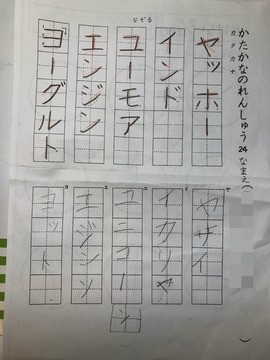 かたかなのれんしゅう 24 なまえ（　　）
カタカナ
なぞる
ヤッホー
インド
ユーモア
エンジン
ヨーグルト
ヤ
ヤザイ
イ
イカリヤ
ユ
ユニコーン
エ
エジソン
ヨ
ヨット